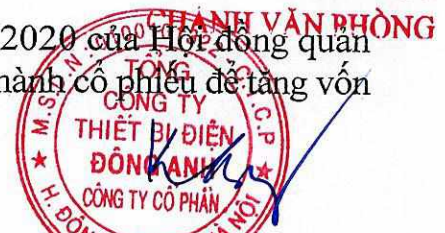 CHÁNH VĂN PHÒNG
2020 của Hội đồng quản
hành cổ phiếu để tăng vốn
TỔNG
CÔNG TY
THIẾT BỊ ĐIỆN
ĐÔNG ANH
CÔNG TY CỔ PHẦN